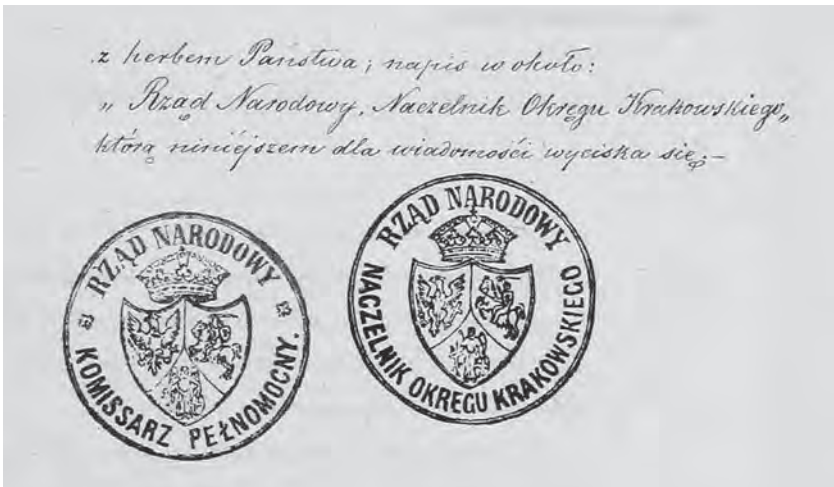 z herbem Państwa; napis w około:
„ Rząd Narodowy, Naczelnik Okręgu Krakowskiego„
którą niniéjszem dla wiadomości wyciska się.—
RZĄD NARODOWY
KOMISSARZ PEŁNOMOCNY.
RZĄD NARODOWY
NACZELNIK OKRĘGU KRAKOWSKIEGO